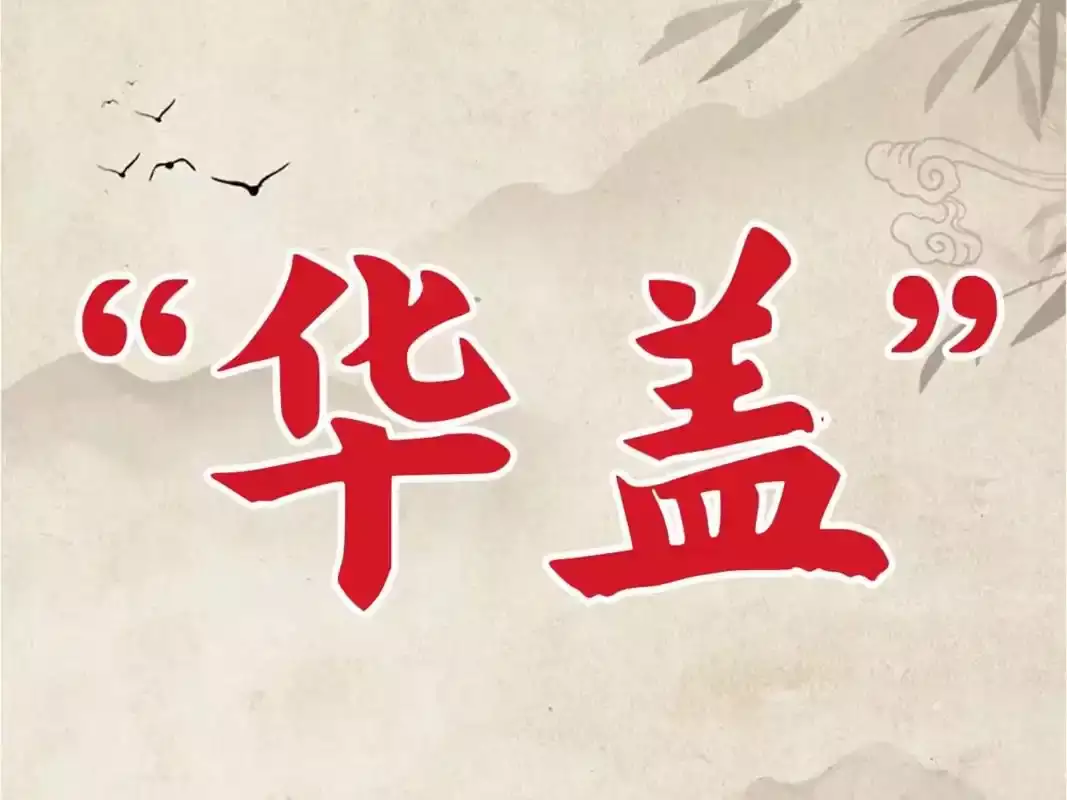 “华盖”